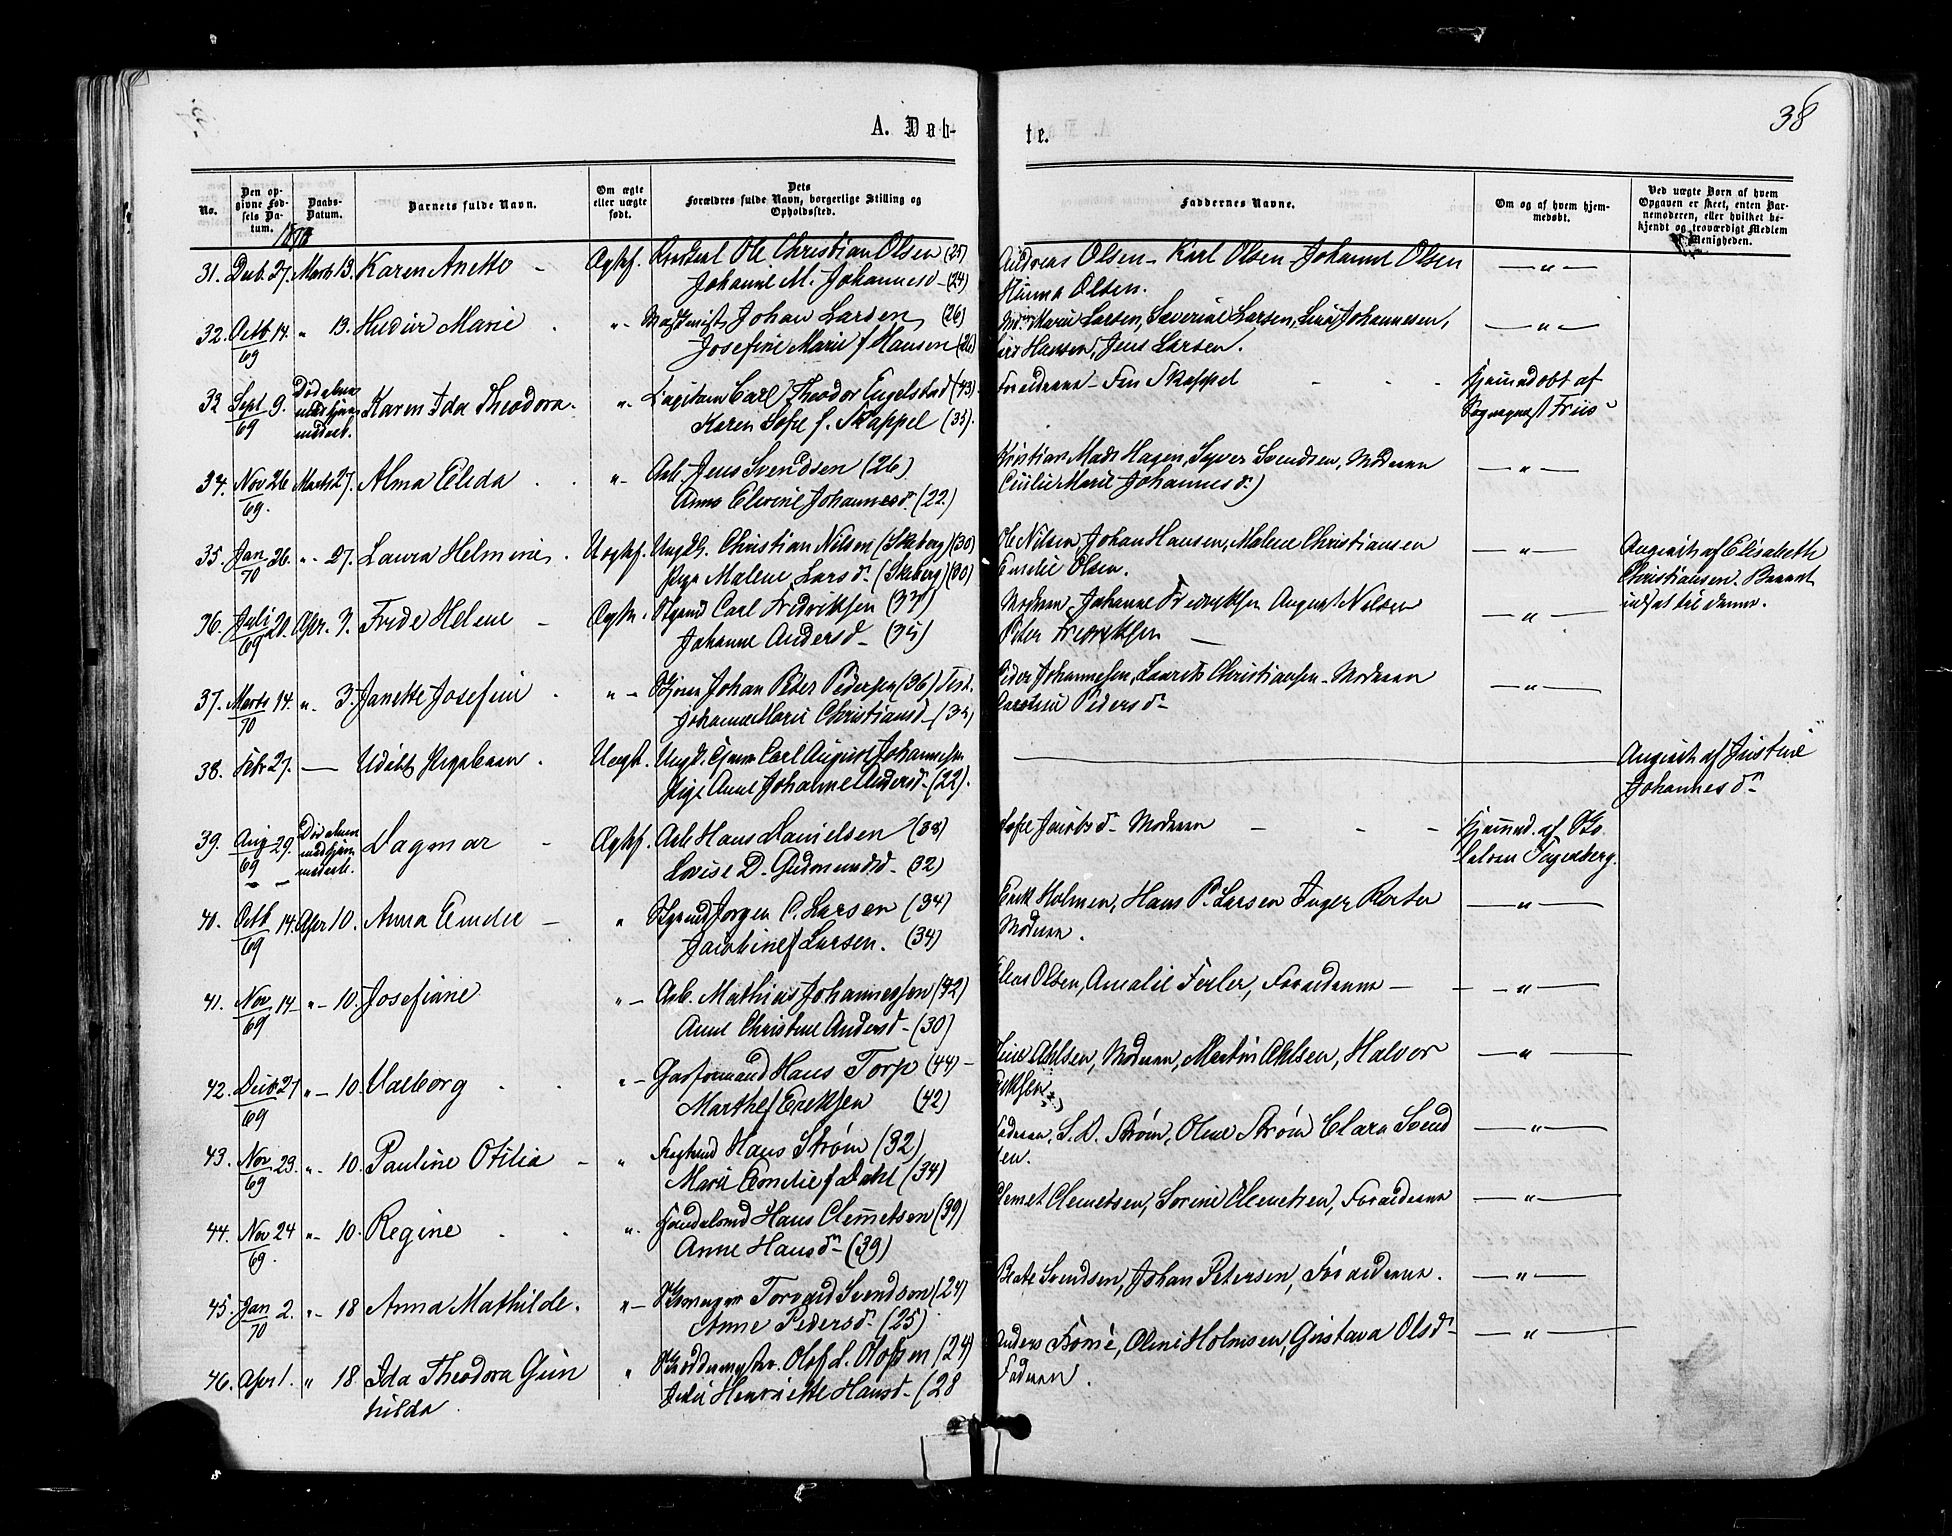 38
A. Døb-
te.
No.
Den op-
givne Fød-
sels Da-
tum.
Daabs-
Datum.
Barnets fulde Navn.
Om ægte
eller uægte
født.
Dets
Forældres fulde Navn, borgerlige Stilling og
Opholdssted.
Faddernes Navne.
Om og af hvem hjem-
medøbt.
Ved uægte Børn af hvem
Opgaven er skeet, enten Bar-
nemoderen, eller hvilket be-
kjendt og troværdigt Medlem
af Menigheden.
1870
31. Decb. 27. Marts 13. Karen Anette - Ægtef. Ole Christian Olsen (25) Andreas Olsen - Karl Olsen - Johanne Olsen — " —
Johanne M. Johannesd - (24) Hanna Olsen.
32. Octb 14. " 13. Marie . "- Johan Larsen (26) Marie Larsen, Severine Larsen, Johannesen, — " —
69 Josefine Marie f Hansen (26) Hansen, Jens Larsen.
33 Sept 9. Karen Ida Theodora. "- Capitain Carl Theodor Engelstad (43) Forældrene - Skappel - - - Hjemmedøbt af
69 Karen Sofie f. Skappel (35). Friis
34. Nov 26 Marts 27. Alma Elida . . "- Arb. Jens Svendsen (26) Kristian Mads Hagen, Syver Svendsen, Moderen — " —
69. Anne Elevine Johannesd. (22.) Cecilie Marie Johannesd.)
35. Jan 26. "- 27. Laura Helmine . Uægtef. Ungk. Christian Nilsen (Skeberg)(30) Ole Nilsen, Johan Hansen, Malene Christiansen — " — Angivet af Elisabeth
70 Pige Malene Larsd. (Skeberg)(30) Emelie Olsen. Christiansen. Barnet
36. Juli 20. Apr. 3. Helene - Ægte. Carl Fredriksen (37) Moderen, Johanne Fredriksen August Nilsen — " — til denne.
69 Johanne Andersd - (35) Peter Fredriksen —
37. Marts 14. "- 3. Janette Josefine . "- Johan Peter Pedersen (36) Peder Johannesen, Laurits Christiansen - Moderen — " —
70 Johanne Marie Christiansd - Pedersd -
38. Febr 27. — Udøbt Pigebarn . Uægt. Ungk. Carl August Johannesen — Angivet af Justine
Pige Anne Johanne Andersd - (22). Johannesd -
39. Aug 29. Dagmar - Ægtef. Arb Hans Danielsen (38) Sofie Jacobsd - Moderen - - - Hjemmed. af
69 Lovise D. Gudmundsd. (32) Fagerberg.
40. Octb 14. Apr 10. Anna Emilie - " Jørgen C. Larsen (34) Erik Holmen, Hans P. Larsen Inger — " —
69 Jacobine f Larsen. (34) Moderen.
41. Nov 14 - "- 10. Josefine "- Arb. Mathias Johannesen (42) Elias Olsen, Amalie Ferler, Forældrene - - " —
69 Anne Christine Andersd - (30)
42. Decb 27 "- 10. Valborg . . "- Hans Torp (44) - Ahlsen, Moderen, Martin Ahlsen, Halvor — " —
69 Marthe f Eriksen (42) Eriksen
43. Nov 23. "- 10. Pauline Otilia - " Hans Strøm (32) Faderen, S. D. Strøm, Oline Strøm Clara Svend — " —
69 Marie Emelie f Dahl (34) sen.
44. Nov 24 "- 10. Regine . . "- Hans Clemetsen (39) Clemet Clemetsen, Sorine Clemetsen, Forældrene — " —
69. Anne Hansd - (39)
45. Jan 2. "- 18 Anna Mathilde. "- Torvald Svendsen (24) Beate Svendsen, Johan Petersen, Forældrene. — " —
70 Anne Pedersd. (25)
46. Apr 1. " 18 Ida Theodora Gun " Olof L. Olofsen (24) Anders Oline Holmsen, Gustava Olsd - — " —
hilda. Henriette Hansd - (28 Faderen.